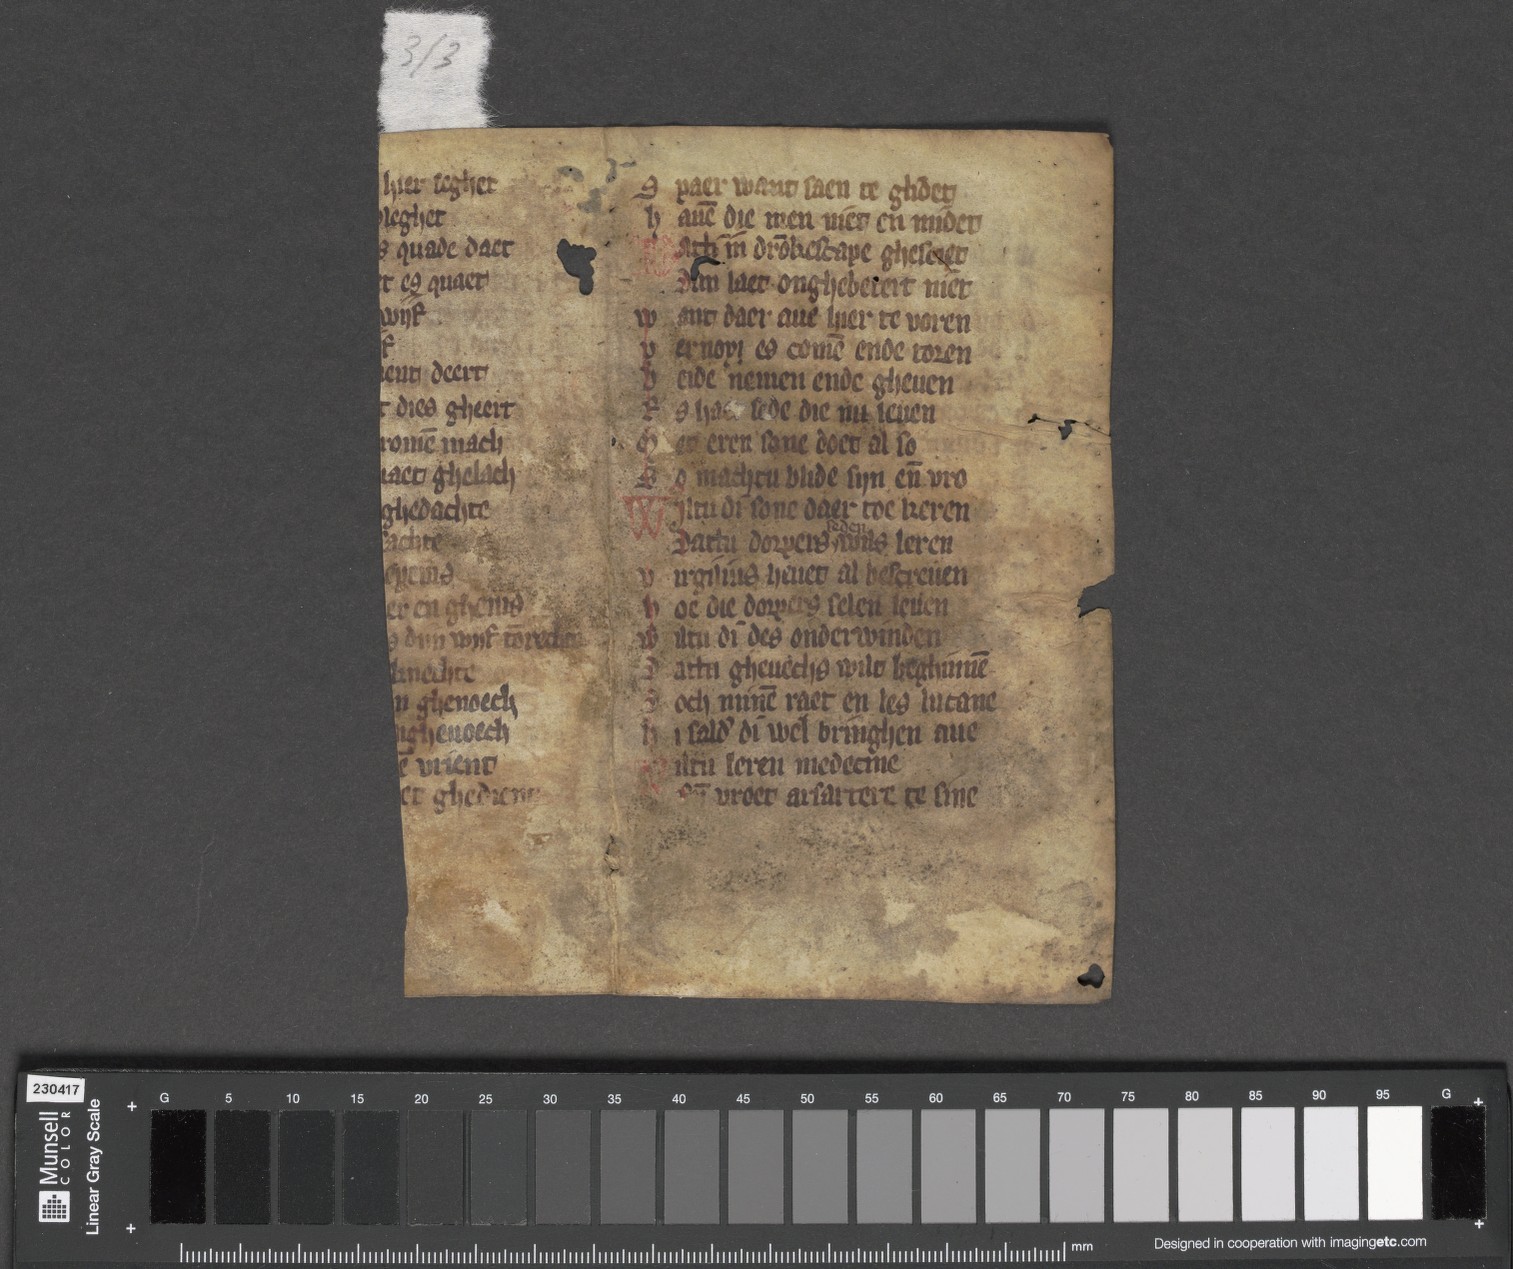 3/3
hier seghet
leghet
s quade daet
t es quaet
wijf
f
ent deert
t dies gheert
romē mach
aet ghelach
ghedachte
sachte
epeins
er en gheins
s dijn wijf
knechte
n ghenoech
ghenoech
ē vrient
et ghedient
S paer want saen te ghdet
h auē die men niet en midet
in drōkescape ghesciet
Dijn laet onghebetert niet
w ant daer aue hier te voren
v ernoyi es comē ende toren
B eide nemen ende gheuen
E s hā sede die nu leuen
G et eren sone doet al so
S o machtu blide sijn eñ vro
W iltu di sone daer toe keren
Dattu dorpers seden wils leren
v irgilius heuet al bescreuen
h oe die dorpers selen leuen
w iltu di des onderwinden
D attu gheuechs wilt beghinnē
D och minē raet en les lucane
h i sald' di wel bringhen ane
W iltu leren medecine
Eñ vroet arsattere te sine
230417
Munsell
COLOR
Linear Gray Scale
G 5 10 15 20 25 30 35 40 45 50 55 60 65 70 75 80 85 90 95 G
mm
Designed in cooperation with imagingetc.com